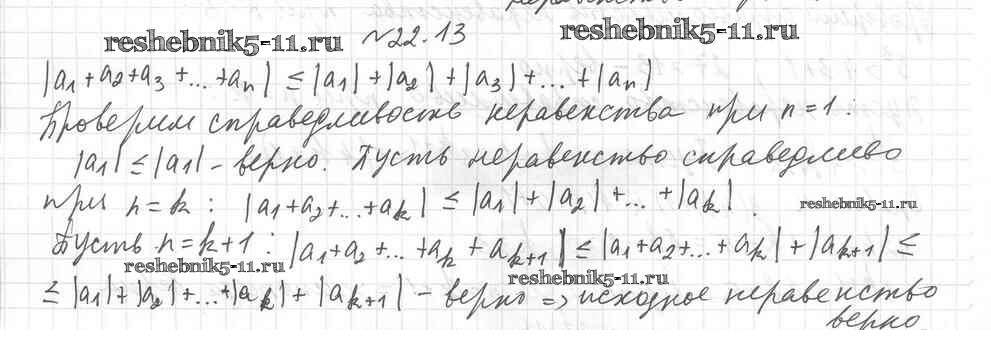 reshebnik5-11.ru №22.13 reshebnik5-11.ru
|a1+a2+a3+...+an| ≤ |a1|+|a2|+|a3|+...+|an|
Проверим справедливость неравенства при n=1.
|a1| ≤ |a1| - верно. Пусть неравенство справедливо
при n=k: |a1+a2+...+ak| ≤ |a1|+|a2|+...+|ak|. reshebnik5-11.ru
Пусть n=k+1: |a1+a2+...+ak+ak+1| ≤ |a1+a2+...+ak|+|ak+1| ≤
reshebnik5-11.ru reshebnik5-11.ru
≤ |a1|+|a2|+...+|ak|+|ak+1| - верно => исходное неравенство
верно.